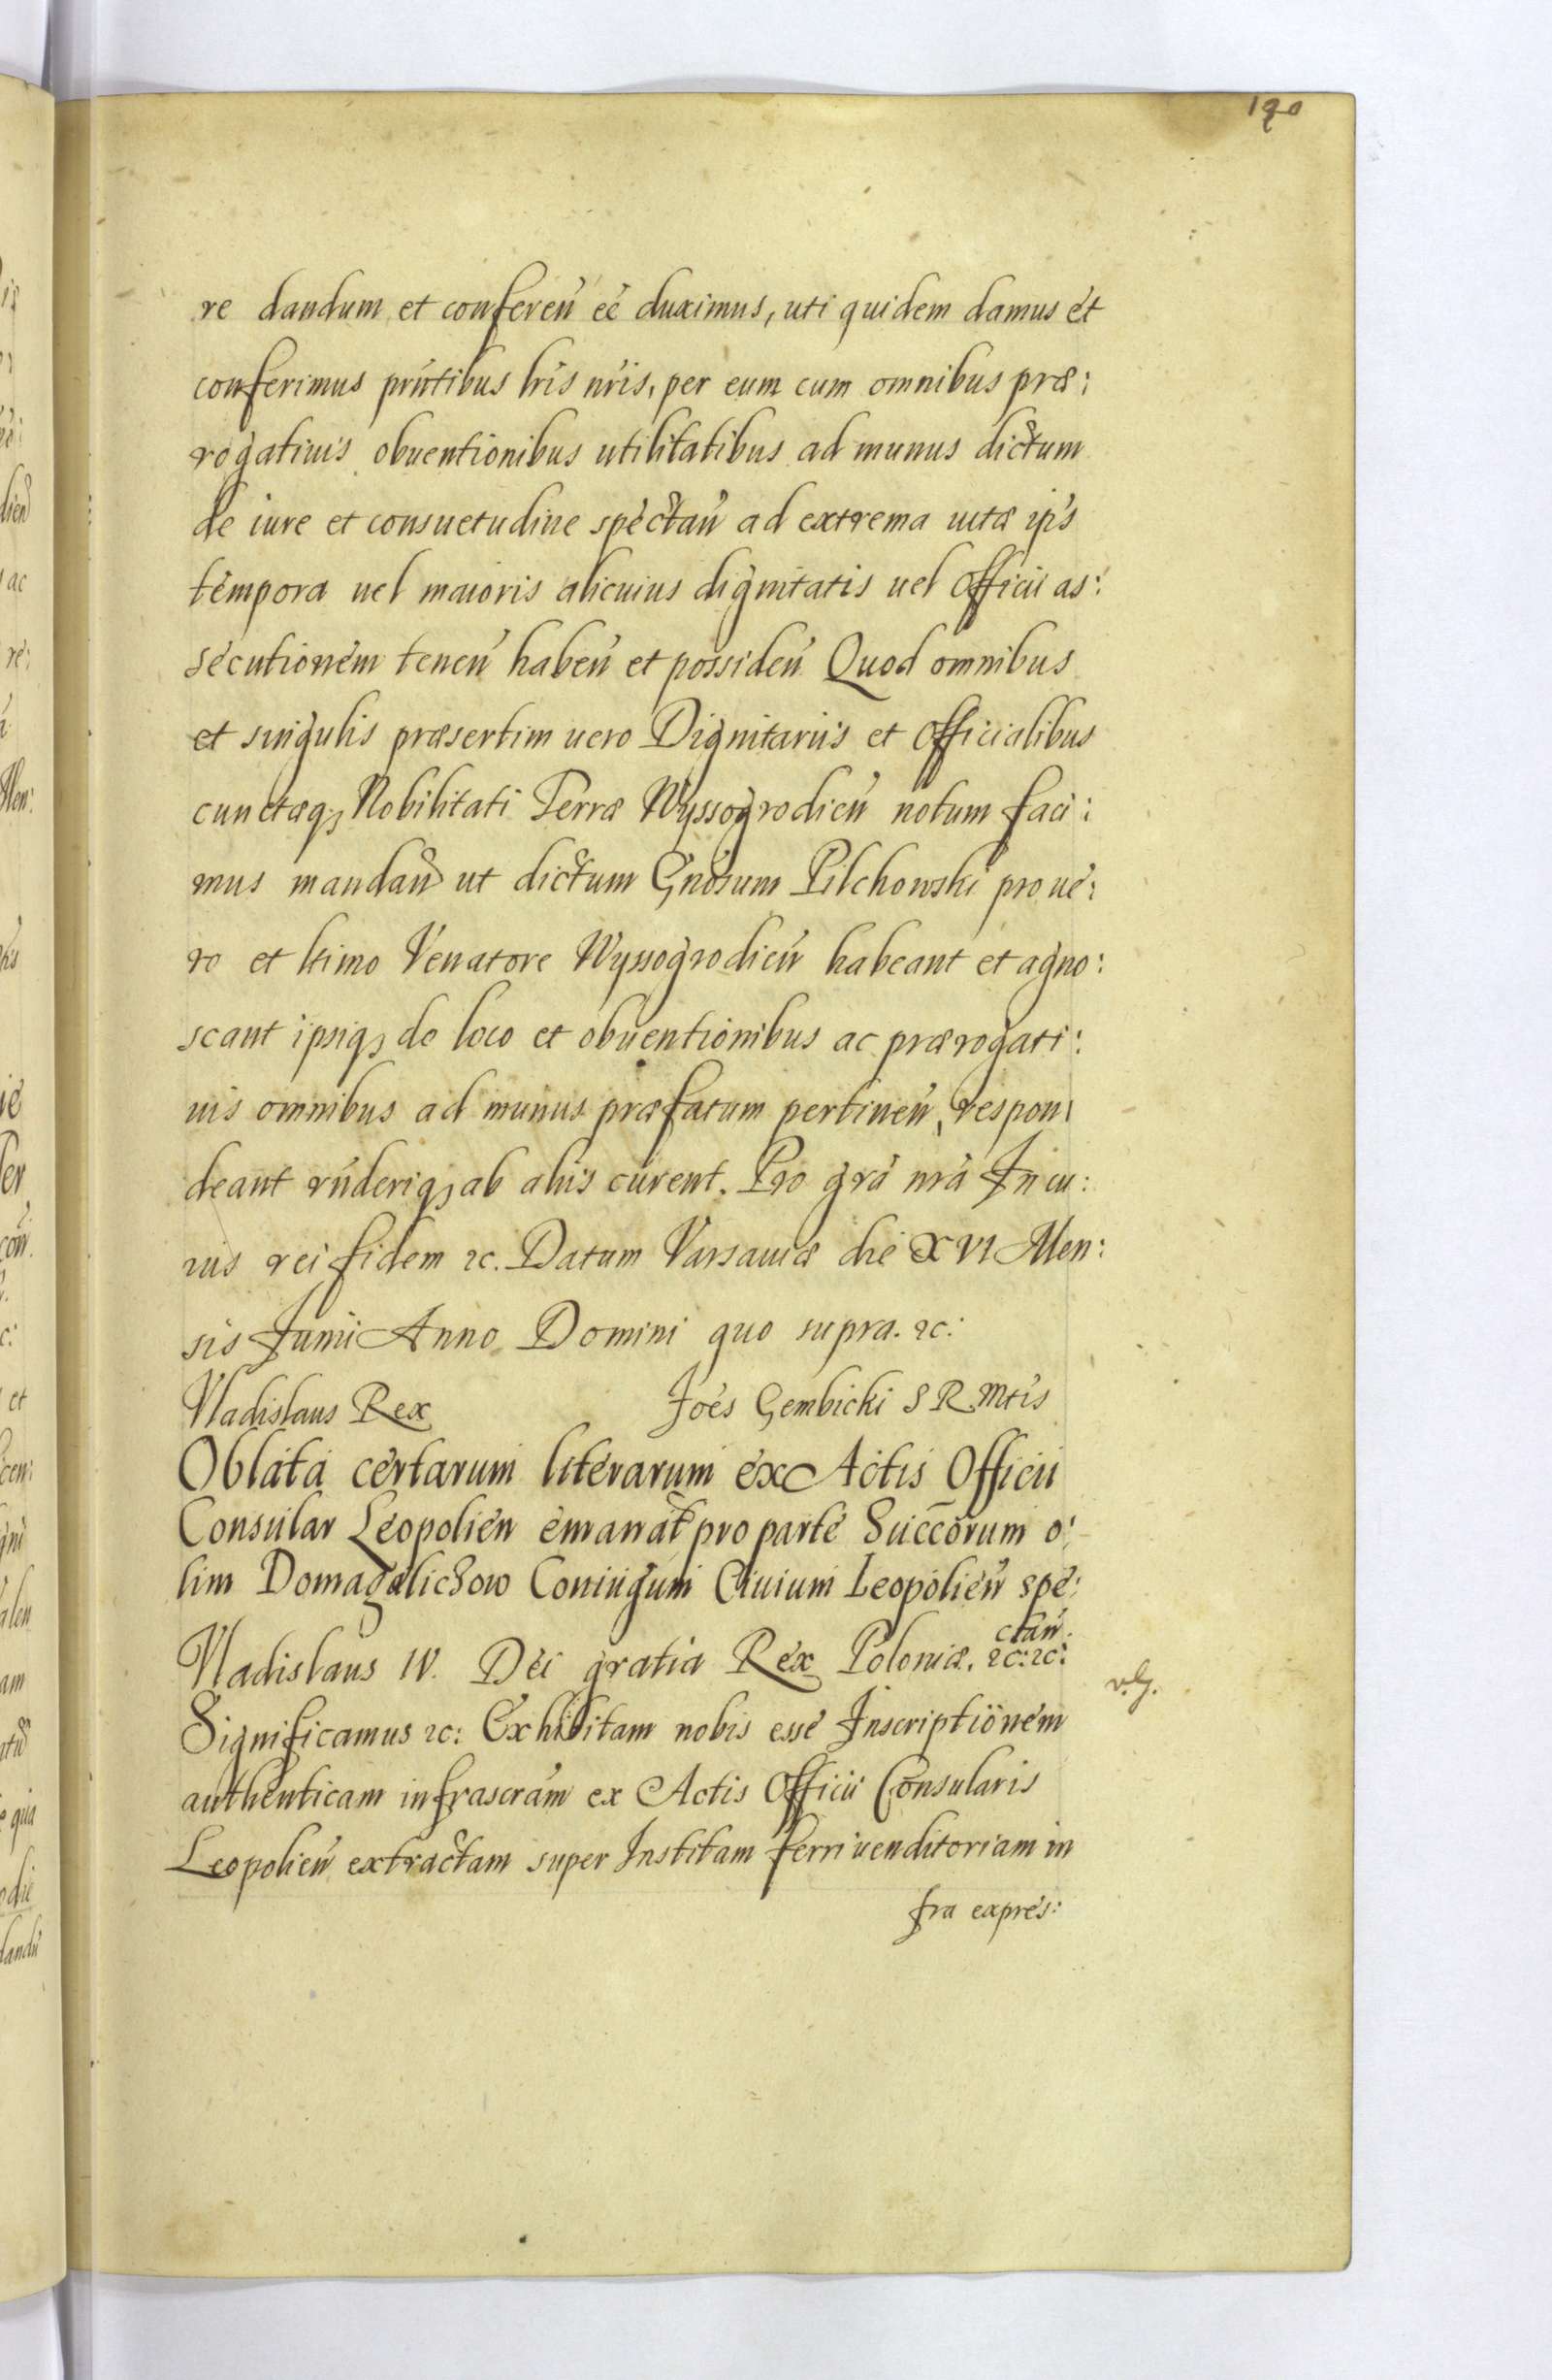 190
re dandum et conferen̄ eē duximus, uti quidem damus et
conferimus prn̄tibus lrīs nrīs, per eum cum omnibus præ:
rogatiuis obuentionibus utilitatibus ad munus dictum
de iure et consuetudine spectan̄ ad extrema uitæ ip̄s
tempora uel maioris alicuius dignitatis uel Officii as:
secutionem tenen̄ haben̄ et possiden̄ Quod omnibus
et singulis præsertim uero Dignitariis et Officialibus
cunctæq; Nobilitati Terræ Wyssogrodien̄ notum faci:
mus mandan̄ ut dictum Gn̄osum Pilchowski pro ue:
ro et ltimo Venatore Wyssogrodien̄ habeant et agno:
scant ipsiq; de loco et obuentionibus ac prærogati:
uis omnibus ad munus præfatum pertinen̄, respon:
deant rn̄deriq; ab aliis curent. Pro grā nrā In cu:
ius rei fidem &c. Datum Varsauiæ die XVI Men:
sis Junii Anno Domini quo supra. &c:
Vladislaus Rex Joēs Gembicki S R Mtis
Oblata certarum literarum ex Actis Officii
Consular Leopolien emanat̄ pro parte Succōrum o:
lim Domagalichow Coniugum Ciuium Leopolien̄ spe:
ctan̄.
Vladislaus IV. Dei gratia Rex Poloniæ. &c: &c:
Significamus &c: Exhibitam nobis esse Inscriptionem
authenticam infrascrām ex Actis Officii Consularis
Leopolien̄ extractam super Institam ferri uenditoriam in
fra expres: